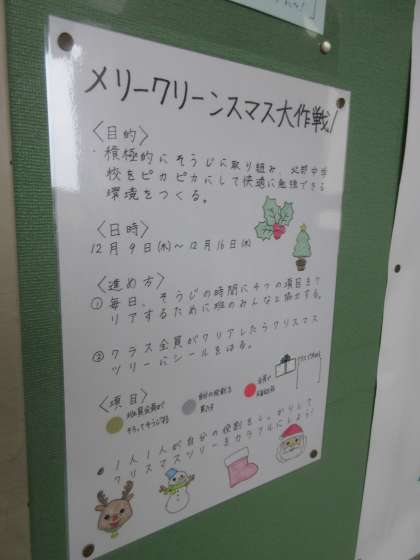 メリークリーンスマス大作戦!
〈目的〉
・積極的にそうじに取り組み、北部中学
校をピカピカにして快適に勉強できる
環境をつくる。
〈日時〉
12月9日(木)~12月16日(木)
〈進め方〉
① 毎日、そうじの時間に4つの項目をク
リアするために班のみんなと協力する。
② クラス全員がクリアしたらクリスマス
ツリーにシールをはる。
〈項目〉
班員全員が
そろってそうじする
自分の役割を
●1人1人が自分の役割をしっかりして
クリスマスツリーをカラフルにしよう!